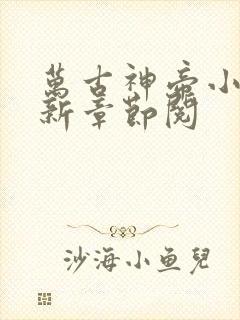 萬古神帝小
新章節閱
沙海小魚兒